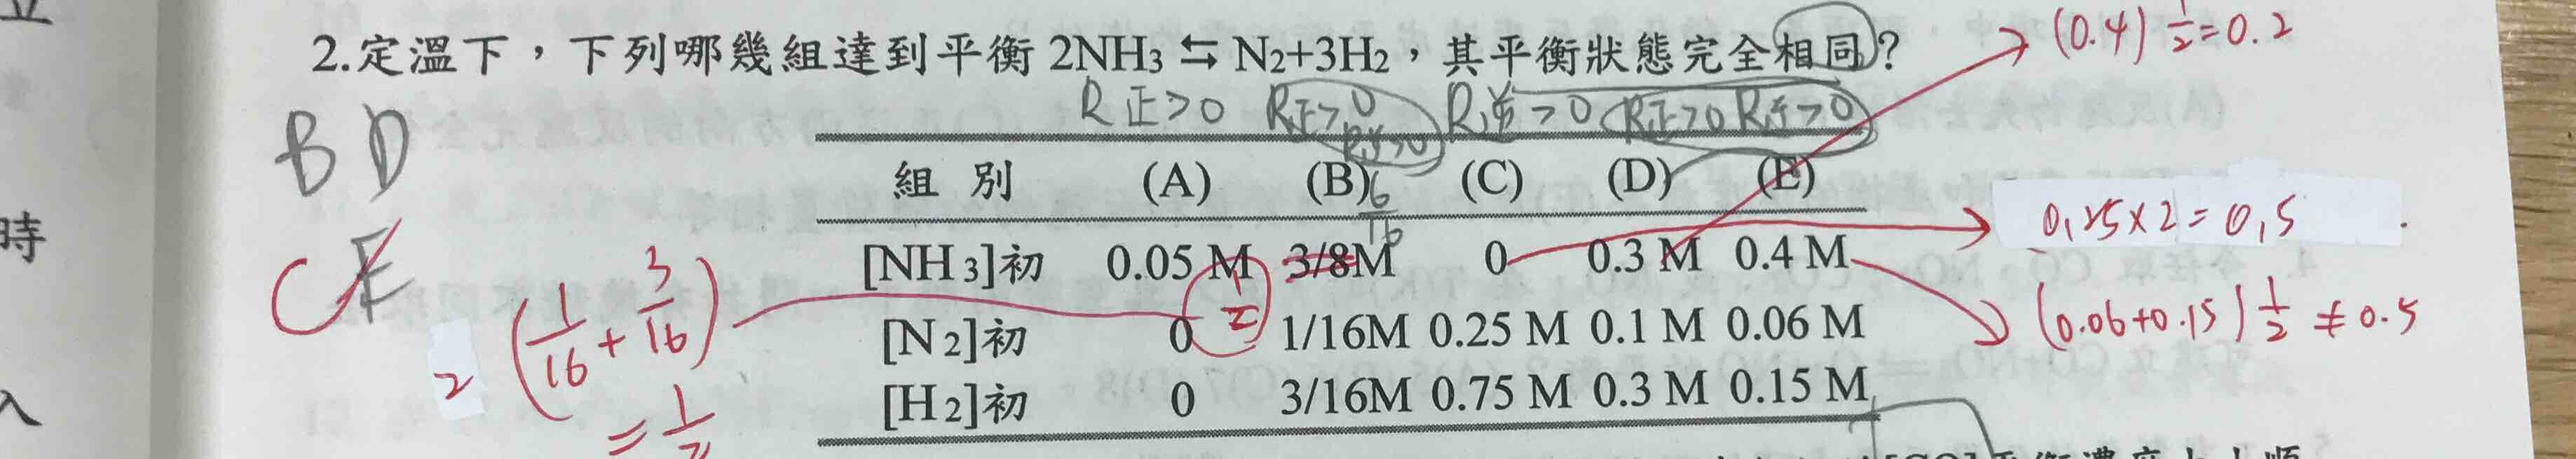 立
時
入
2.定溫下，下列哪幾組達到平衡 2NH₃ ⇆ N₂+3H₂，其平衡狀態完全相同？
(0.4) 1/2 = 0.2
R正>0 R正>0 R逆>0 R逆>0 R正>0 R逆>0
B D
組 別 (A) (B) (C) (D) (E)
6/16
[NH₃]初 0.05 M 3/8M 0 0.3 M 0.4 M
0.25×2=0.5
C E
1/2
2 (1/16 + 3/16)
= 1/2
[N₂]初 0 1/16M 0.25 M 0.1 M 0.06 M
(0.06+0.15) 1/2 ≠ 0.5
[H₂]初 0 3/16M 0.75 M 0.3 M 0.15 M